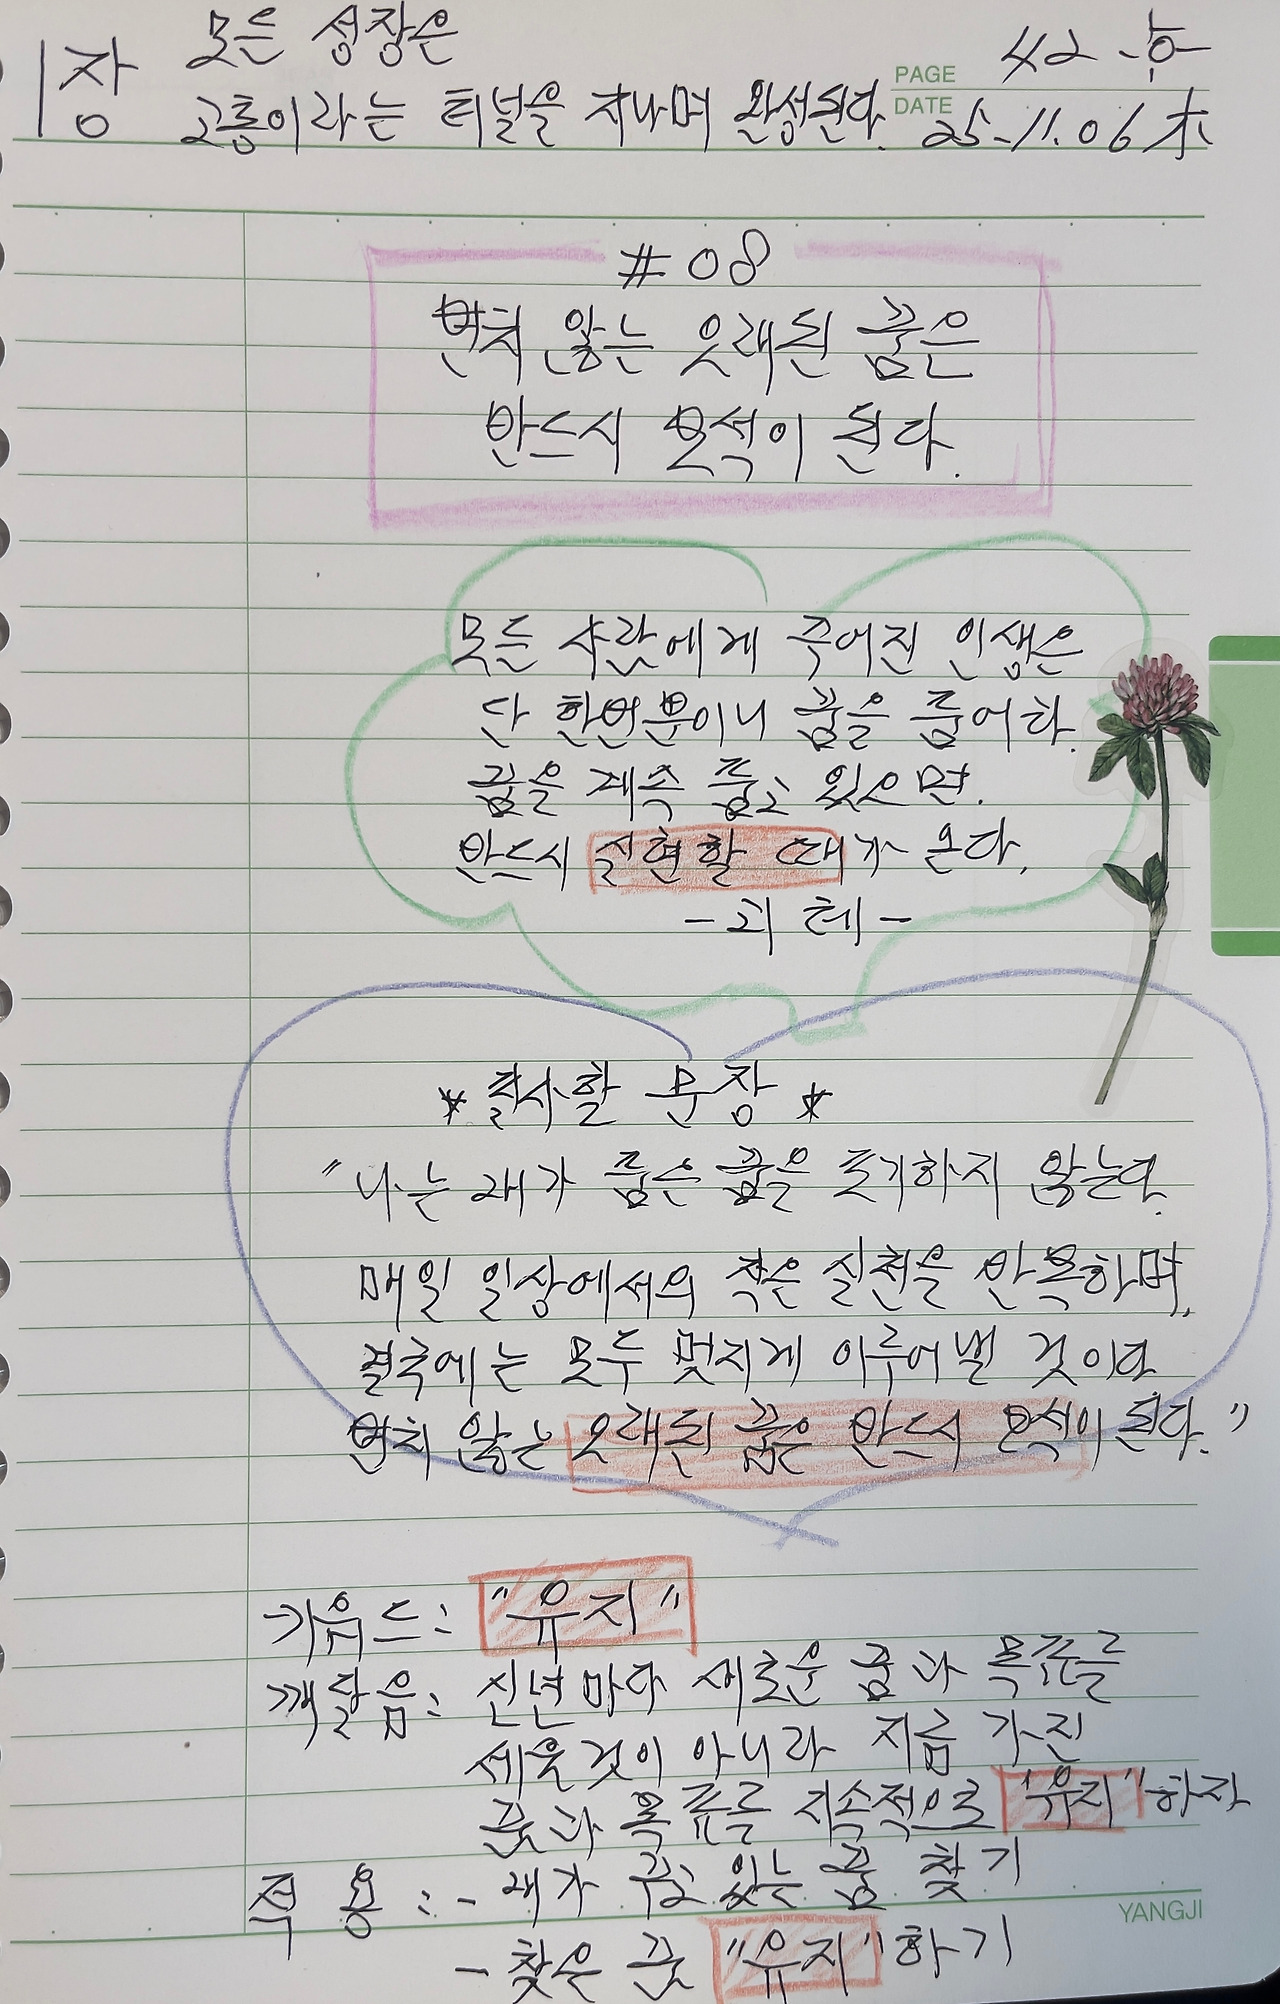 1장 모든 성장은
고통이라는 터널을 지나며 완성된다.
PAGE 42 - 후
DATE 25-11.06 木
#08
변치 않는 오래된 꿈은
반드시 보석이 된다.
모든 사람에게 주어진 인생은
단 한번뿐이니 꿈을 품어라.
꿈을 계속 품고 있으면.
반드시 실현할 때가 온다.
- 괴테 -
* 필사할 문장 *
"나는 내가 품은 꿈을 포기하지 않는다.
매일 일상에서의 작은 실천을 반복하며,
결국에는 모두 멋지게 이루어낼 것이다
변치 않는 오래된 꿈은 반드시 보석이 된다."
키워드: "유지"
깨달음: 신년마다 새로운 꿈과 목표를
세울것이 아니라 지금 가진
꿈과 목표를 지속적으로 "유지"하자
적용: - 내가 꾸고 있는 꿈 찾기
- 찾은 꿈 "유지"하기
YANGJI